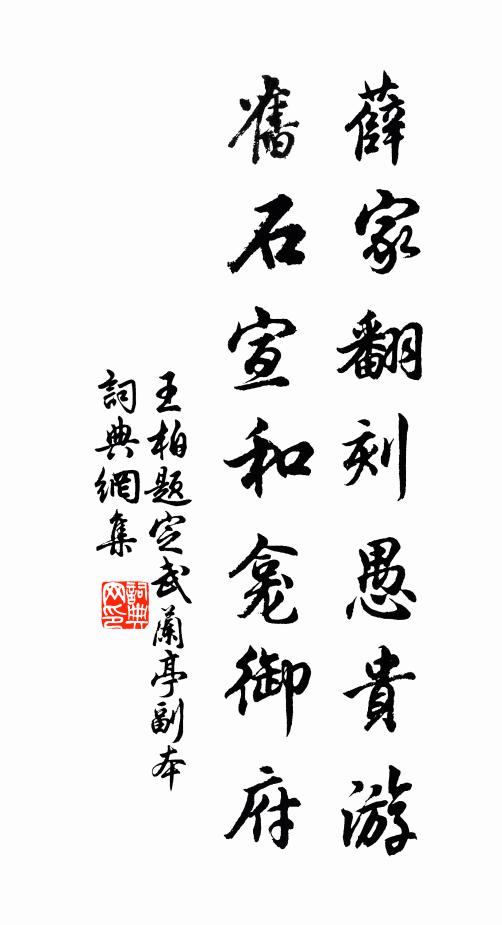 薛家翻刻愚貴游
舊石宣和龕御府
王柏題定武蘭亭副本
詞典網集
詞典网印